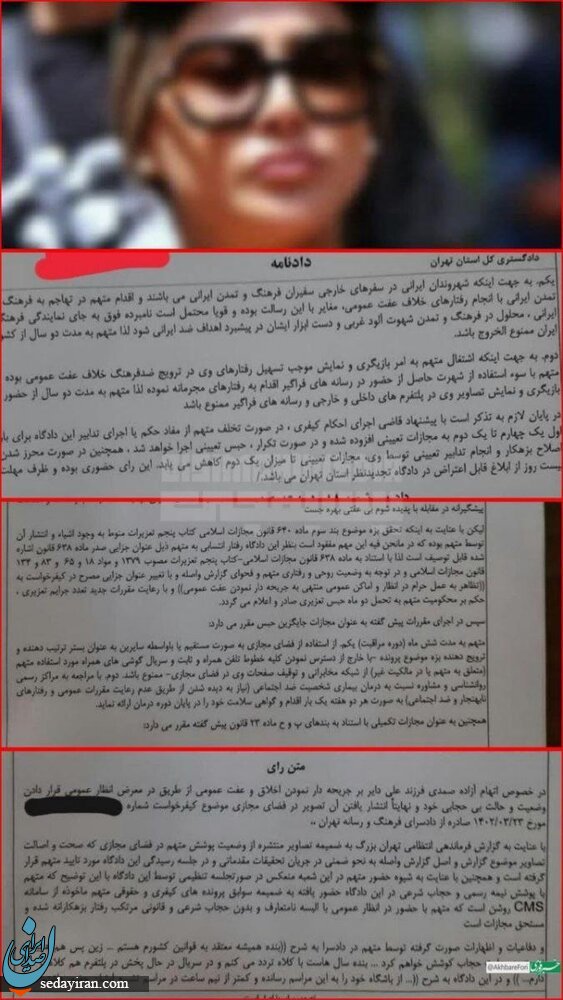 دادگستری کل استان تهران
دادنامه
یکم. به جهت اینکه شهروندان ایرانی در سفرهای خارجی سفیران فرهنگ و تمدن ایرانی می باشند و اقدام متهم در تهاجم به فرهنگ
تمدن ایرانی با انجام رفتارهای خلاف عفت عمومی، مغایر با این رسالت بوده و قویا محتمل است نامبرده فوق به جای نمایندگی فرهنگ
ایرانی ، محلول در فرهنگ و تمدن شهوت آلود غربی و دست ابزار ایشان در پیشبرد اهداف ضد ایرانی شود لذا متهم به مدت دو سال از کشور
ایران ممنوع الخروج باشد.
دوم. به جهت اینکه اشتغال متهم به امر بازیگری و نمایش موجب تسهیل رفتارهای وی در ترویج ضدفرهنگ خلاف عفت عمومی بوده
متهم با سوء استفاده از شهرت حاصل از حضور در رسانه های فراگیر اقدام به رفتارهای مجرمانه نموده لذا متهم به مدت دو سال از حضور
بازیگری و نمایش تصاویر وی در پلتفرم های داخلی و خارجی و رسانه های فراگیر ممنوع باشد
در پایان لازم به تذکر است با پیشنهاد قاضی اجرای احکام کیفری ، در صورت تخلف متهم از مفاد حکم یا اجرای تدابیر این دادگاه برای بار
اول یک چهارم تا یک دوم به مجازات تعیینی افزوده شده و در صورت تکرار ، حبس تعیینی اجرا خواهد شد ، همچنین در صورت محرز شدن
اصلاح بزهکار و انجام تدابیر تعیینی توسط وی، مجازات تعیینی تا میزان یک دوم کاهش می یابد. این رای حضوری بوده و ظرف مهلت
بیست روز از ابلاغ قابل اعتراض در دادگاه تجدیدنظر استان تهران می باشد./
پیشگیرانه در مقابله با پدیده شوم بی عفتی بهره جست
لیکن با عنایت به اینکه تحقق بزه موضوع بند سوم ماده ۶۴۰ قانون مجازات اسلامی کتاب پنجم تعزیرات منوط به وجود اشیاء و انتشار آن
توسط متهم بوده که در مانحن فیه این مهم مفقود است بنظر این دادگاه رفتار انتسابی به متهم ذیل عنوان جزایی صدر ماده ۶۳۸ قانون اشاره
شده قابل توصیف است لذا با استناد به ماده ۶۳۸ قانون مجازات اسلامی-کتاب پنجم تعزیرات مصوب ۱۳۷۹ و مواد ۱۸ و ۶۵ و ۸۳ و ۱۳۴
قانون مجازات اسلامی و در توجه به وضعیت روحی و رفتاری متهم و فحوای گزارش واصله و با تغییر عنوان جزایی مصرح در کیفرخواست به
((تظاهر به عمل حرام در انظار و اماکن عمومی منتهی به جریحه دار نمودن عفت عمومی)) و با رعایت مقررات جدید تعدد جرایم تعزیری ،
حکم بر محکومیت متهم به تحمل دو ماه حبس تعزیری صادر و اعلام می گردد.
سپس در اجرای مقررات پیش گفته به عنوان مجازات جایگزین حبس مقرر می دارد:
متهم به مدت شش ماه (دوره مراقبت) یکم. از استفاده از فضای مجازی به صورت مستقیم یا باواسطه سایرین به عنوان بستر ترتیب دهنده و
ترویج دهنده بزه موضوع پرونده -با خارج از دسترس نمودن کلیه خطوط تلفن همراه و ثابت و سریال گوشی های همراه مورد استفاده متهم
(متعلق به متهم یا در مالکیت غیر) از شبکه مخابراتی و توقیف صفحات وی در فضای مجازی- ممنوع باشد. دوم. با مراجعه به مراکز رسمی
روانشناسی و مشاوره نسبت به درمان بیماری شخصیت ضد اجتماعی (نیاز به دیده شدن از طریق عدم رعایت مقررات عمومی و رفتارهای
نابهنجار و ضد اجتماعی) به صورت هر دو هفته یک بار اقدام و گواهی سلامت خود را در پایان دوره درمان ارائه نماید.
همچنین به عنوان مجازات تکمیلی با استناد به بندهای پ و ح ماده ۲۳ قانون پیش گفته مقرر می دارد:
متن رای
در خصوص اتهام آزاده صمدی فرزند علی دایر بر جریحه دار نمودن اخلاق و عفت عمومی از طریق در معرض انظار عمومی قرار دادن
وضعیت و حالت بی حجابی خود و نهایتاً انتشار یافتن آن تصویر در فضای مجازی موضوع کیفرخواست شماره
مورخ ۱۴۰۲/۰۳/۲۳ صادره از دادسرای فرهنگ و رسانه تهران ،،
با عنایت به گزارش فرماندهی انتظامی تهران بزرگ به ضمیمه تصاویر منتشره از وضعیت پوشش متهم در فضای مجازی که صحت و اصالت
تصاویر موضوع گزارش و اصل گزارش واصله به نحو ضمنی در جریان تحقیقات مقدماتی و در جلسه رسیدگی این دادگاه مورد تایید متهم قرار
گرفته است و همچنین با عنایت به شیوه حضور متهم در این شعبه منعکس در صورتجلسه تنظیمی توسط این دادگاه با این توضیح که متهم
با پوشش نیمه رسمی و حجاب شرعی در این دادگاه حضور یافته به ضمیمه سوابق پرونده های کیفری و حقوقی متهم ماخوذه از سامانه
CMS روشن است که متهم با حضور در انظار عمومی با البسه نامتعارف و بدون حجاب شرعی و قانونی مرتکب رفتار بزهکارانه شده و
مستحق مجازات است
و دفاعیات و اظهارات صورت گرفته توسط متهم در دادسرا به شرح ((بنده همیشه معتقد به قوانین کشورم هستم ... زین پس هم
حجاب کوشش خواهم کرد ... بنده سال هاست با کلاه تردد می کنم و در سریال در حال پخش در پلتفرم هم کلاه
دارم...)) و در این دادگاه به شرح ((... از باشگاه خود را به این مراسم رسانده و کمتر از نیم ساعت در مراسم
@AkhbareFori
صدای ایران
sedayiran.com